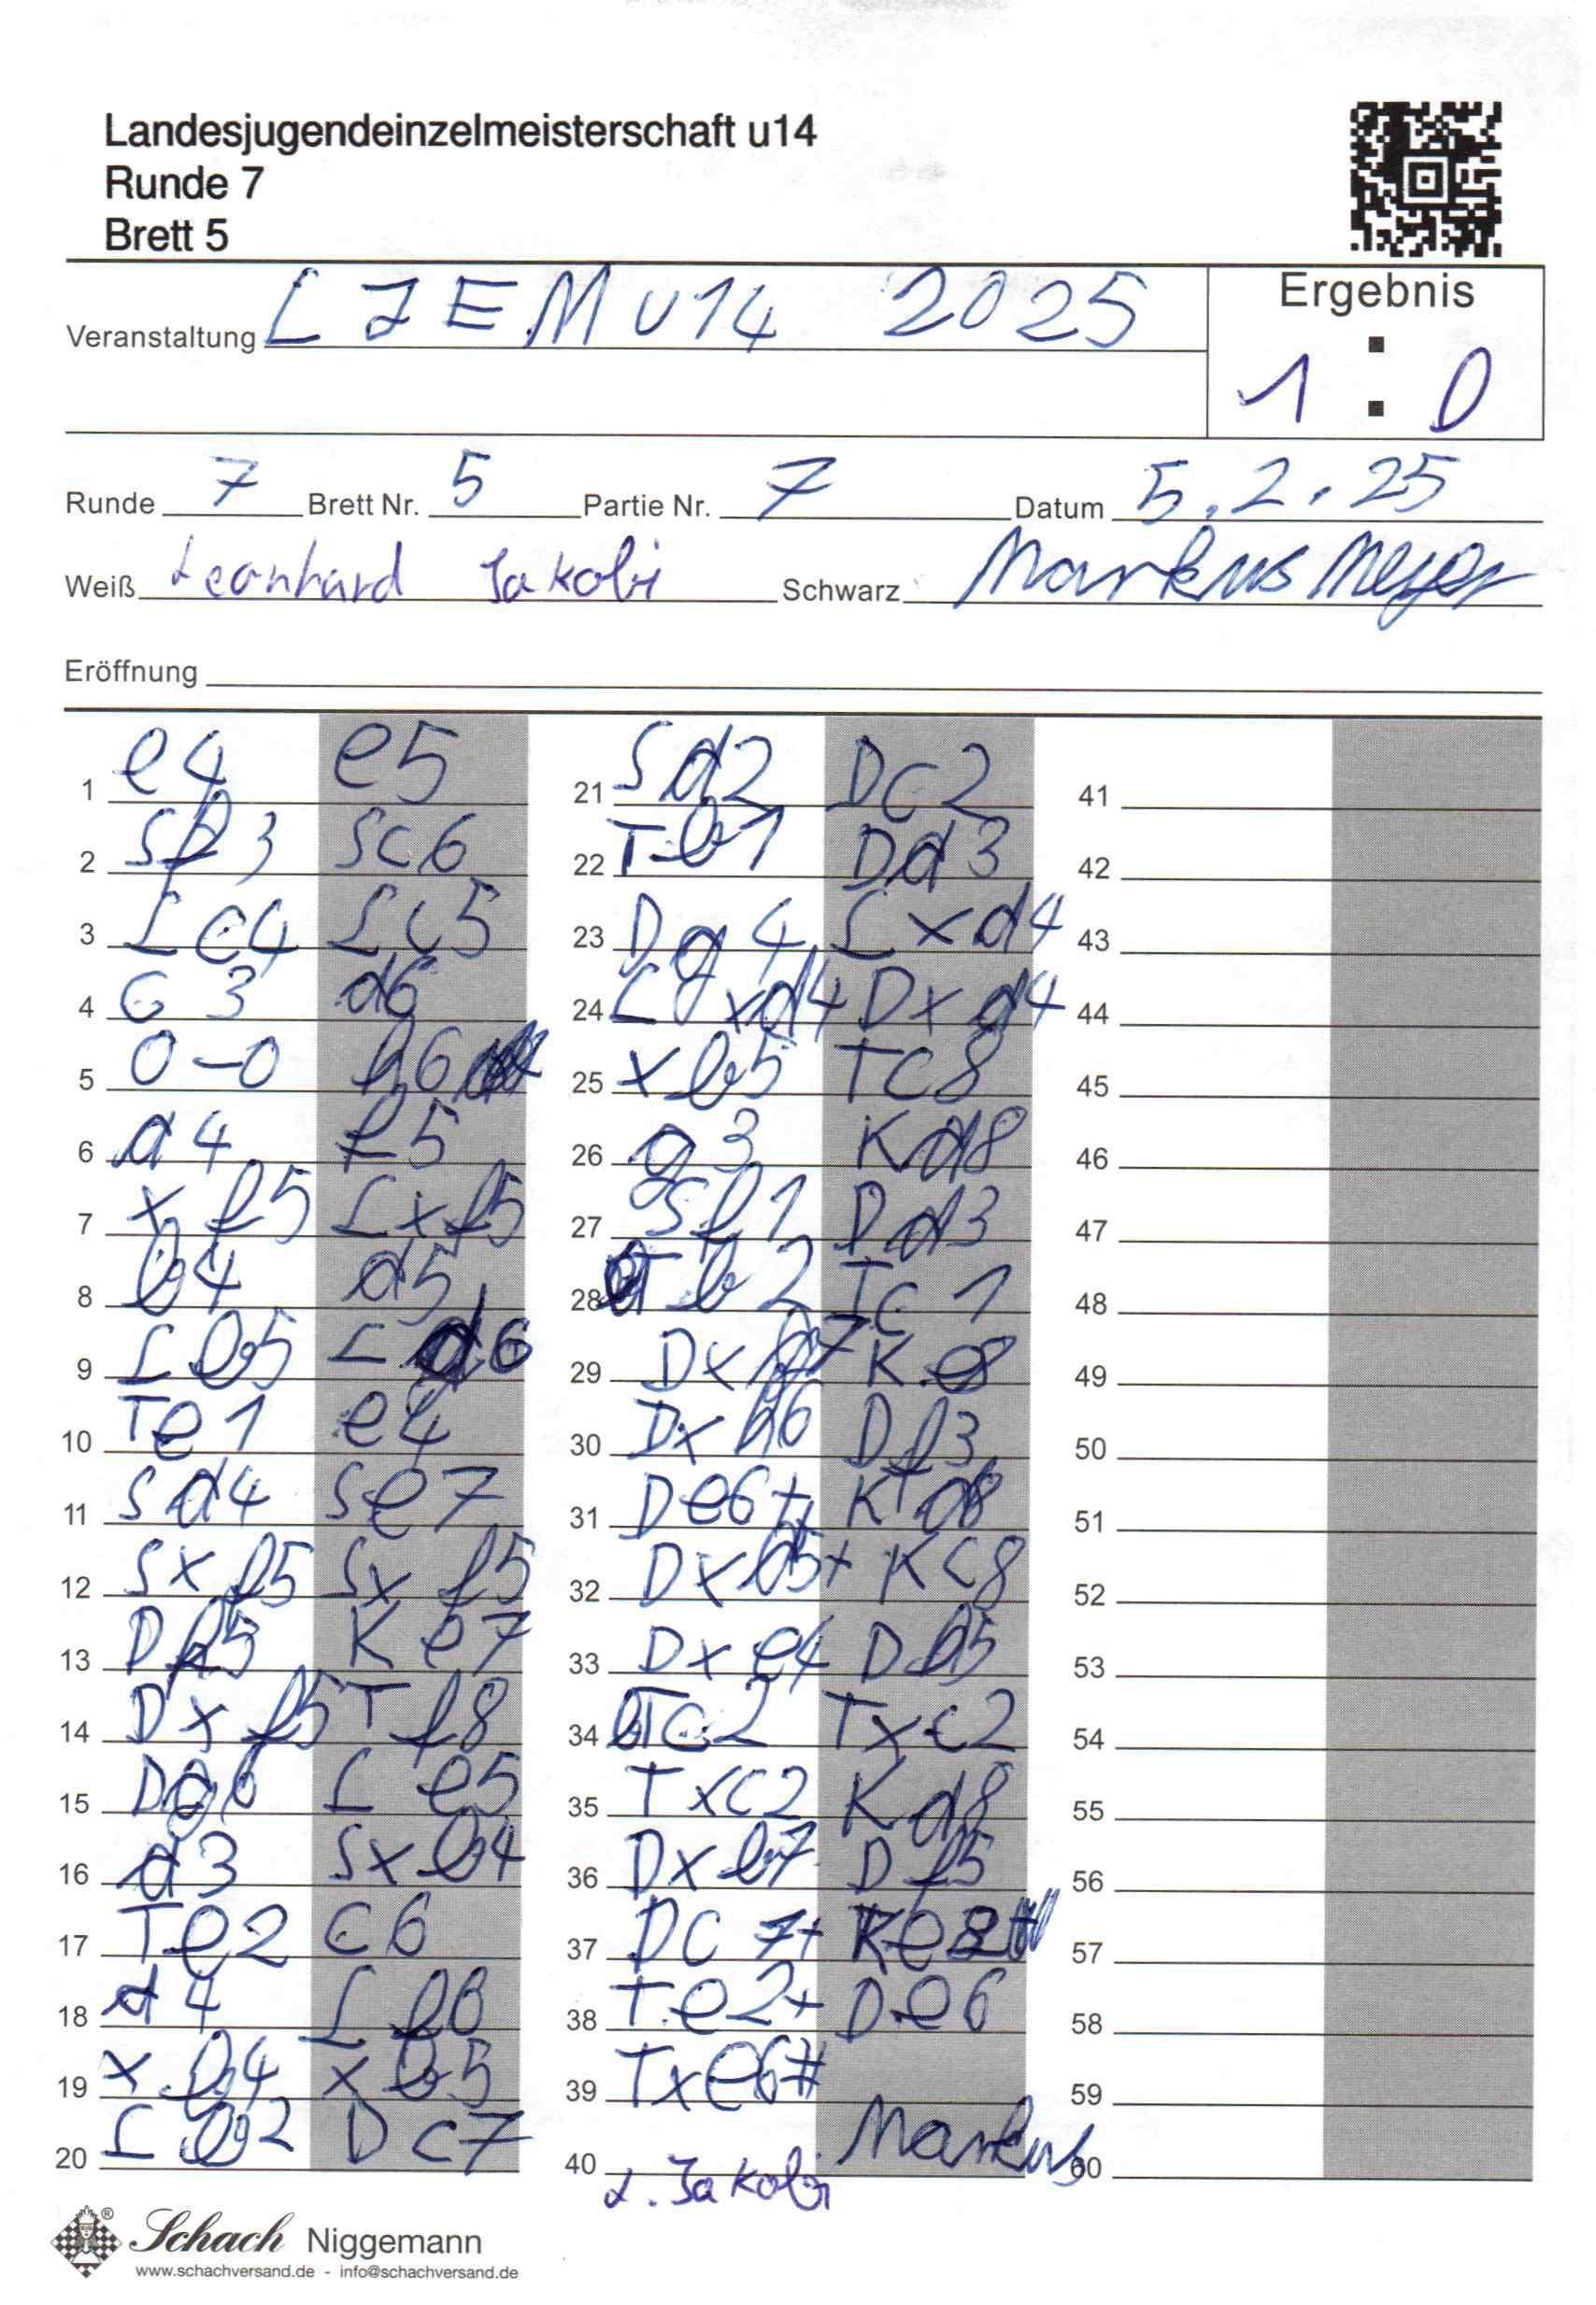 Landesjugendeinzelmeisterschaft u14
Runde 7
Brett 5
Veranstaltung LJEM U14 2025
Ergebnis
1 : 0
Runde 7 Brett Nr. 5 Partie Nr. 7 Datum 5.2.25
Weiß Leonhard Jakobi Schwarz Markus Meyer
Eröffnung
1 e4 e5
2 Sf3 Sc6
3 Lc4 Lc5
4 c3 d6
5 0-0 h6
6 d4 f5
7 xf5 Lxf5
8 b4 d5
9 Lb5 Ld6
10 Te1 e4
11 Sd4 Se7
12 Sxf5 Sxf5
13 Dh5 Ke7
14 Dxf5 Tf8
15 Dg6 Le5
16 d3 Sxb4
17 Te2 c6
18 d4 Lf6
19 xb4 xb5
20 Lb2 Dc7
21 Sd2 Dc2
22 Tb1 Dd3
23 Dg4 Lxd4
24 Lxd4 Dxd4
25 xb5 Tc8
26 g3 Kd8
27 Sf1 Dd3
28 Tb2 Tc1
29 Dxg7 Ke8
30 Dxh6 Df3
31 De6+ Kd8
32 Dxd5+ Kc8
33 Dxe4 Dh5
34 Tc2 Txc2
35 Txc2 Kd8
36 Dxb7 Df5
37 Dc7+ Ke8
38 Te2+ De6
39 Txe6#
40 L. Jakobi Markus
41
42
43
44
45
46
47
48
49
50
51
52
53
54
55
56
57
58
59
60
Schach Niggemann
www.schachversand.de - info@schachversand.de